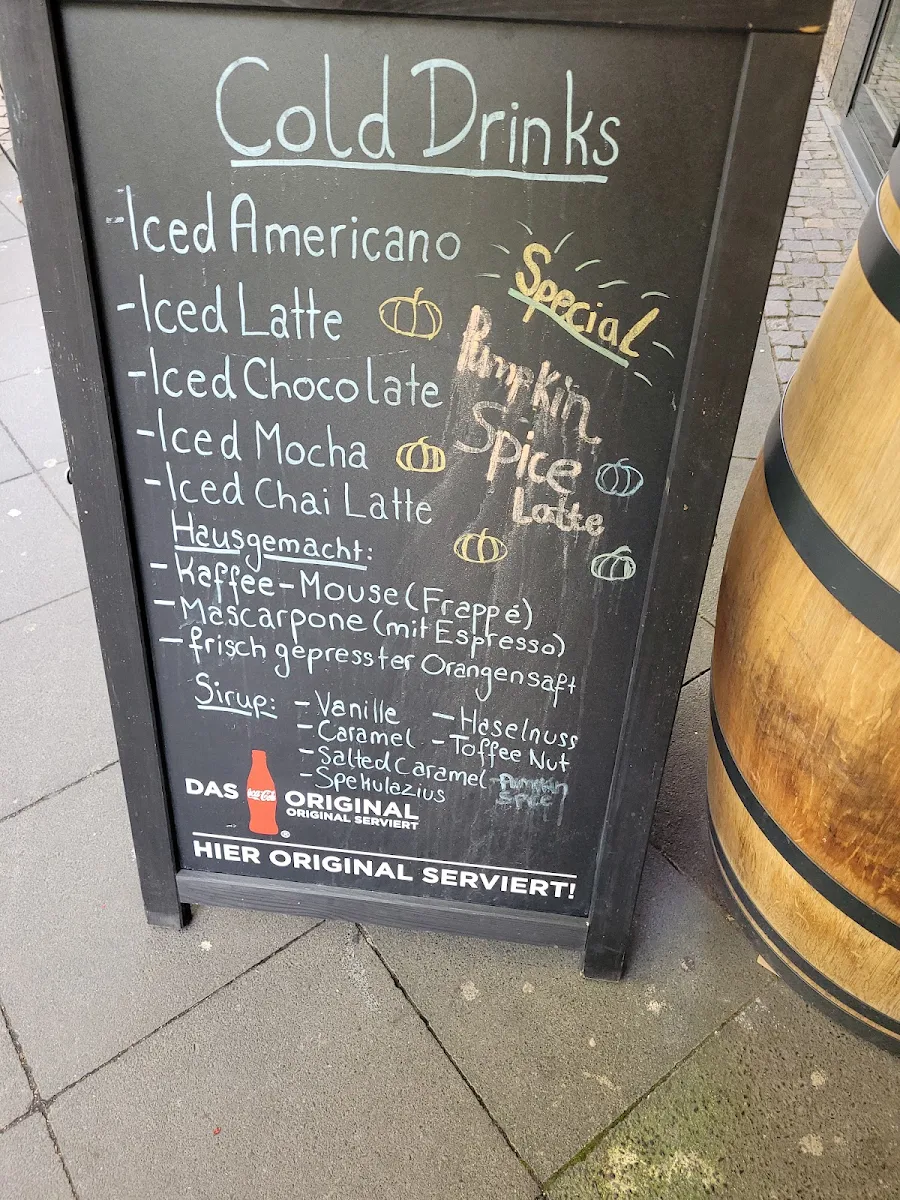 Cold Drinks
-Iced Americano
-Iced Latte
-Iced Chocolate
-Iced Mocha
-Iced Chai Latte
Special
Pumpkin
Spice
Latte
Hausgemacht:
-Kaffee-Mouse (Frappé)
-Mascarpone (mit Espresso)
-frisch gepresster Orangensaft
Sirup: -Vanille -Haselnuss
-Caramel -Toffee Nut
-Salted Caramel -Pumpkin
Spice
-Spekulazius
DAS Coca-Cola ORIGINAL
ORIGINAL SERVIERT
®
HIER ORIGINAL SERVIERT!